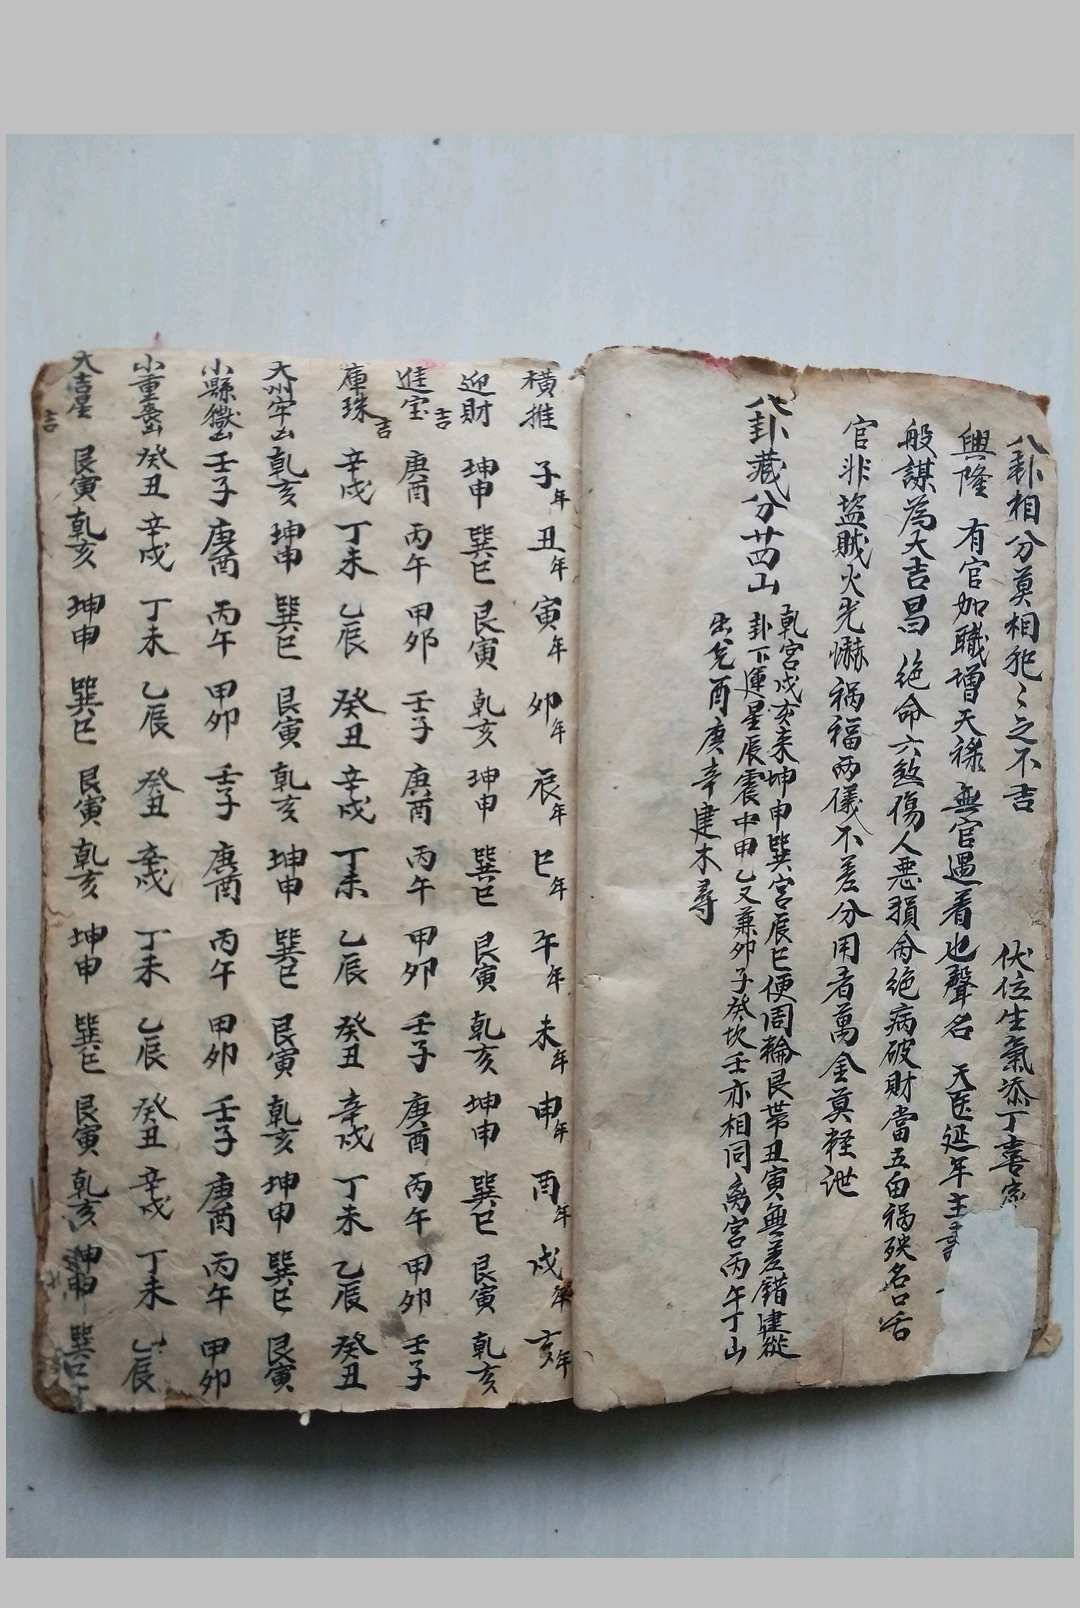 八卦相分莫相犯〻之不吉 伏位生氣添丁喜
興隆 有官加職增天祿 無官遇着也聲名 天医延年主
般謀為大吉昌 絶命六煞傷人悪 損畜絶病破財當 五白祸殃名口舌
官非盜賊火光嚇 祸福两儀不差分 用者萬金莫輊
八卦藏分廿四山
乾宮戌亥来坤申 巽宮辰巳便周輪 艮帶丑寅無差錯 建從
卦下運星辰 震中甲乙又兼卯 子癸坎壬亦相同 离宮丙午丁山
出兌酉庚辛建木尋
橫推 子年 丑年 寅年 卯年 辰年 巳年 午年 未年 申年 酉年 戌年 亥年
迎財 吉 坤申 巽巳 艮寅 乾亥 坤申 巽巳 艮寅 乾亥 坤申 巽巳 艮寅 乾亥
進宝 庚酉 丙午 甲卯 壬子 庚酉 丙午 甲卯 壬子 庚酉 丙午 甲卯 壬子
庫珠 吉 辛戌 丁未 乙辰 癸丑 辛戌 丁未 乙辰 癸丑 辛戌 丁未 乙辰 癸丑
大州牢凶 乾亥 坤申 巽巳 艮寅 乾亥 坤申 巽巳 艮寅 乾亥 坤申 巽巳 艮寅
小縣獄凶 壬子 庚酉 丙午 甲卯 壬子 庚酉 丙午 甲卯 壬子 庚酉 丙午 甲卯
小重喪凶 癸丑 辛戌 丁未 乙辰 癸丑 辛戌 丁未 乙辰 癸丑 辛戌 丁未 乙辰
大吉星 吉 艮寅 乾亥 坤申 巽巳 艮寅 乾亥 坤申 巽巳 艮寅 乾亥 坤申 巽巳